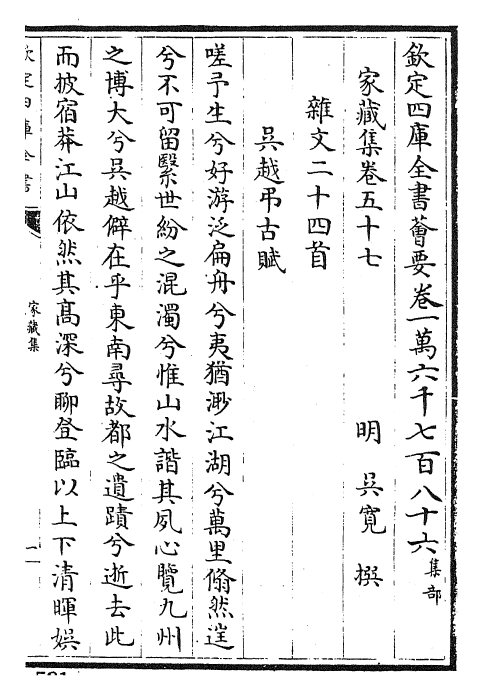 欽定四庫全書薈要卷一萬六千七百八十六集部
家藏集卷五十七 明 吳寬 撰
雜文二十四首
吳越弔古賦
嗟予生兮好游泛扁舟兮夷猶渺江湖兮萬里翛然逞
兮不可留繄世紛之混濁兮惟山水諧其夙心覽九州
之博大兮吳越僻在乎東南尋故都之遺蹟兮逝去此
而披宿莽江山依然其髙深兮聊登臨以上下清暉娛
欽定四庫全書
家藏集
一